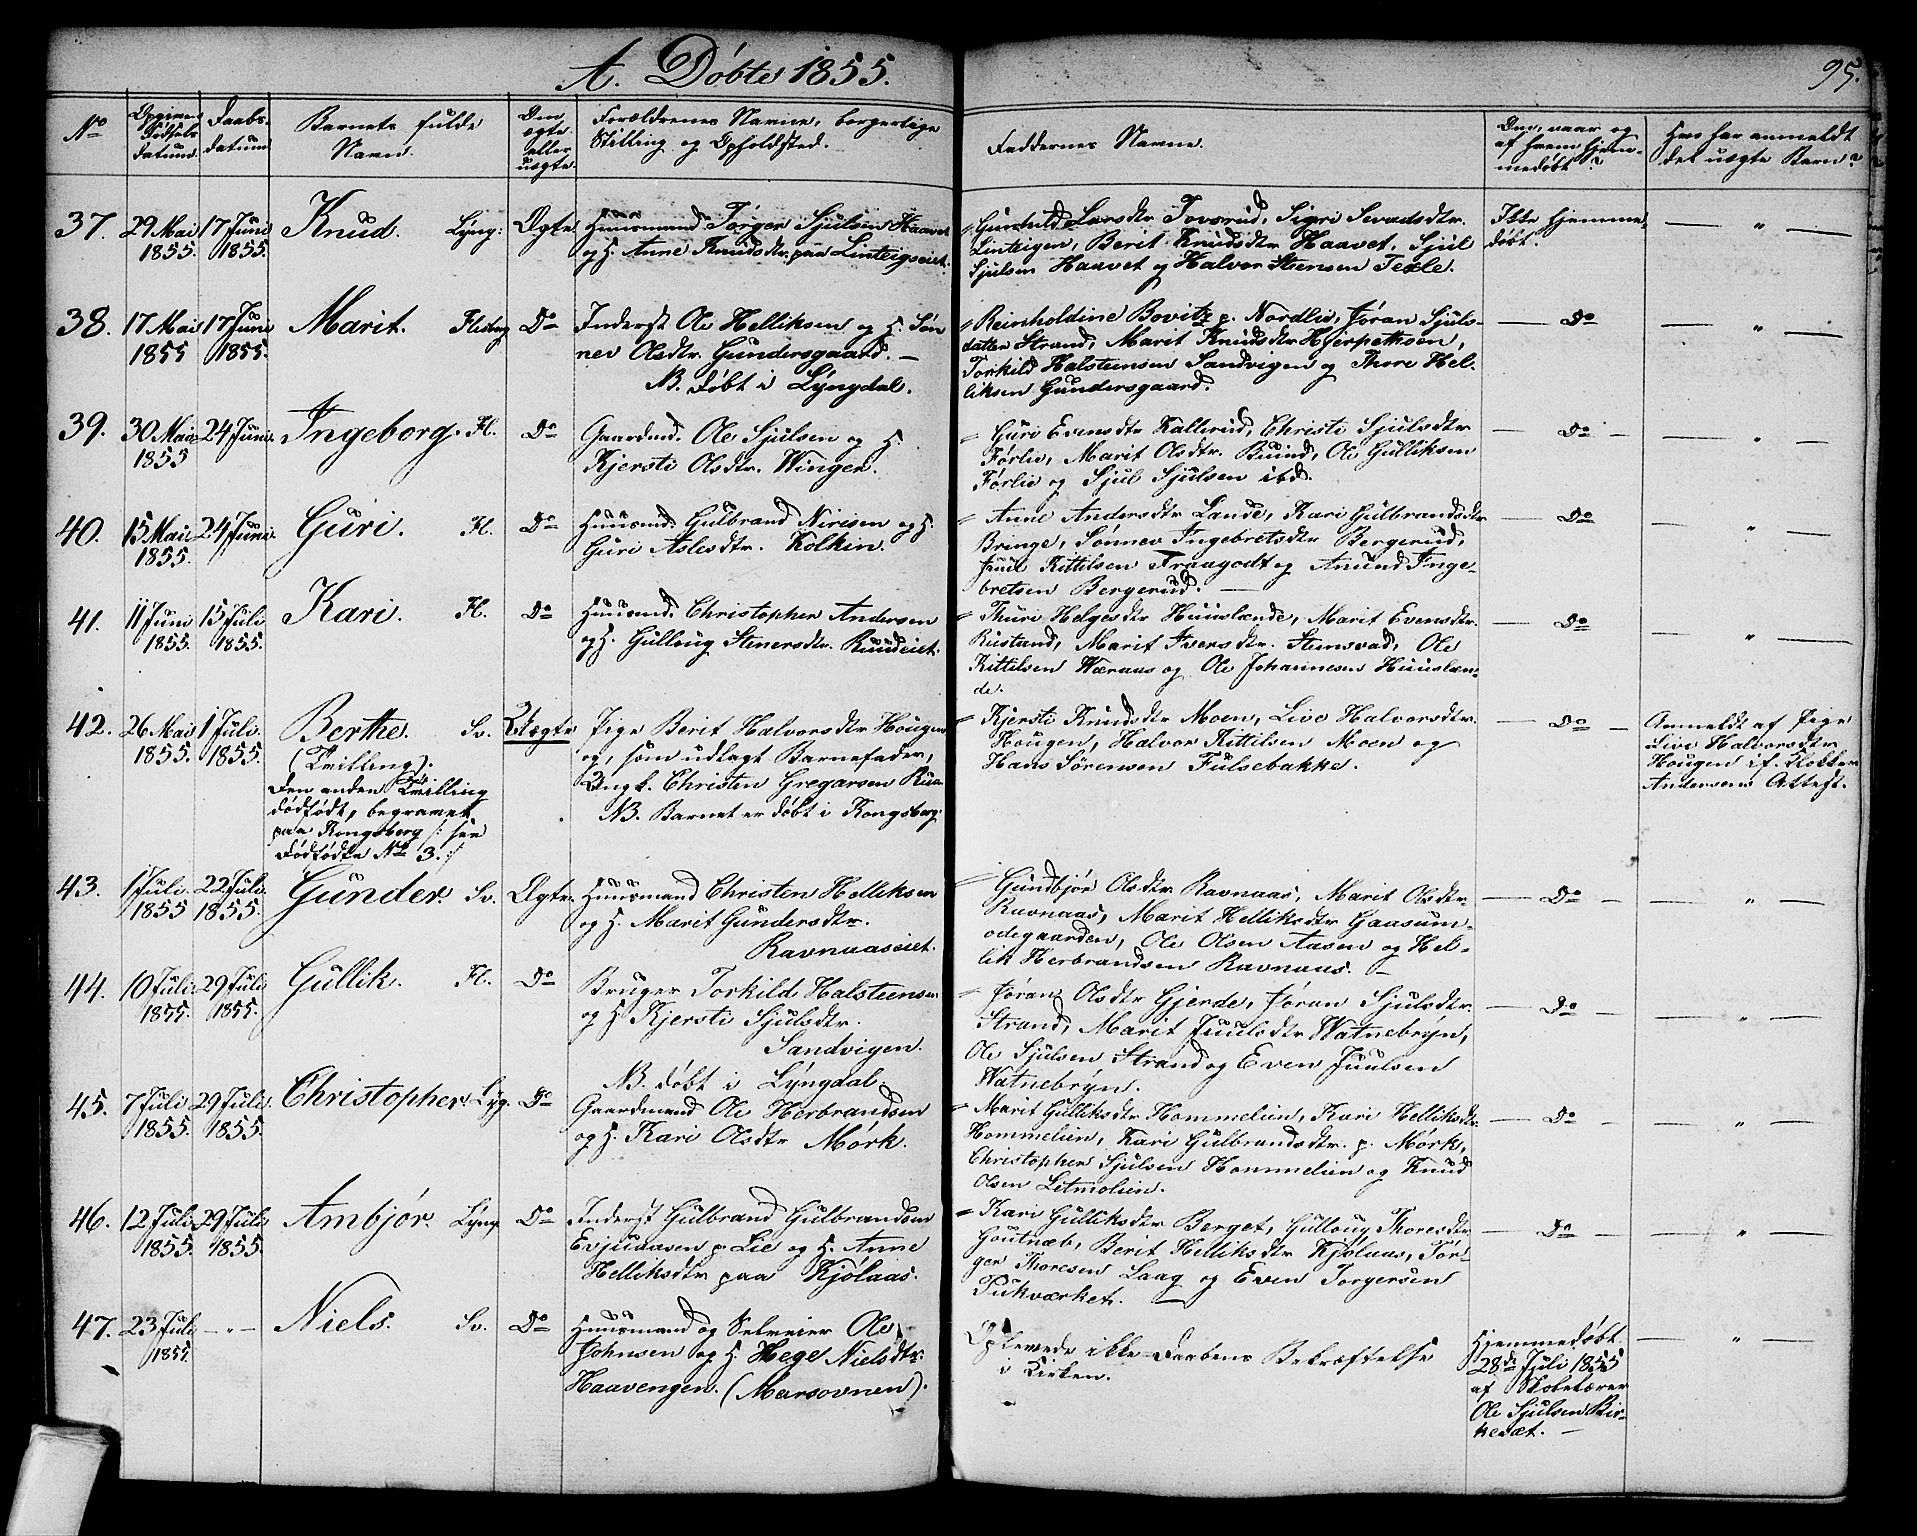 A. Døbte 1855.
95.
No
Opgiven Fødsels datum.
Daabs datum
Barnets fulde Navn.
Om ægte eller uægte.
Forældrenes Navne, borgerlige Stilling og Opholdsted.
Faddernes Navne.
Om, naar og af hvem hjemmedøbt?
Hvo har anmeldt det uægte Barn?
37. 29 Mai 1855. 17 Juni 1855. Knud. Lyng: Ægte
Huusmand Törger Sjulsen Haavet
og H. Anne Knudsdtr. paa Linteigseiet.
Gunhild Larsdtr Tovsrud, Sigri Sevadsdtr.
Linteigen, Berit Knudsdtr Haavet, Sjul
Sjulsen Haavet og Halvor Steensen Texle.
Ikke hjemme-
døbt. — " —
38. 17 Mai 1855 17 Juni 1855. Marit. Flesberg Do
Inderst Ole Helliksen og H. Søn
nev Olsdtr. Gundersgaard. —
NB. døbt i Lyngdal.
Reinholdine Bovitz p. Nordliv, Jøran Sjuls-
datter Strand, Marit Knudsdtr Hjerpetkoen,
Torkild Halsteensen Sandvigen og Thore Hel-
liksen Gundersgaard.
— Do — " —
39. 30 Mai 1855 24 Juni. Ingeborg. Fl. Do
Gaardmd. Ole Sjulsen og H.
Kjersti Olsdtr. Wingen.
Guri Evensdtr Kallerud, Christi Sjulsdtr
Førliv, Marit Olsdtr. Buind, Ole Gulliksen
Førliv og Sjul Sjulsen ibd.
— Do — — " —
40. 15 Mai 1855. 24 Juni. Guri. Fl. Do
Huusmd. Gulbrand Nirisen og H.
Guri Aslesdtr. Kolkin.
Anne Andersdtr Lande, Kari Gulbrandsdtr
Bringe, Sønnev Ingebretsdtr Bergerud,
Juul Kittilsen Fraagodt og Anund Inge-
bretsen Bergerud. —
— Do — " —
41. 11 Juni 1855. 15 Juli 1855. Kari. Fl. Do
Huusmd. Christopher Andersen
og H. Gulloug Stenersdtr. Ruudeiet.
Thuri Helgesdtr Huuslænde, Marit Evensdtr.
Rustand, Marit Iversdtr. Stensrud, Ole
Kittilsen Væraas og Ole Johannesen Huuslæn-
de.
— Do — " —
42. 26 Mai 1855. 1 Juli 1855. Berthe. Sv. Uægte
(Tvilling).
Den anden Tvilling
dødfødt, begravet
paa Kongsberg /: see
Dødfødte No 3. :/
Pige Berit Halvorsdtr Hougen
og, som udlagt Barnefader,
Ungk. Christen Gregarsen Ruu
NB. Barnet er døbt i Kongsberg.
Kjersti Knudsdtr Moen, Live Halvorsdtr.
Hougen, Halvor Kittilsen Moen og
Hans Sörensen Fulsebakke.
— Do —
Anmeldt af Pige
Live Halvorsdtr
Hougen if. Klokker
Andersens Attest.
43. 1 Juli 1855 22 Juli 1855. Gunder. Sv. Ægte.
Huusmand Christen Helliksen
og H. Marit Gundersdtr.
Ravnaaseiet.
Gundbjør Olsdtr Ravnaas, Marit Olsdtr
Ravnaas, Marit Helliksdtr Gaasum-
odegaarden, Ole Olsen Aasen og Hel-
lik Herbrandsen Ravnaas. —
— Do — — " —
44. 10 Juli. 1855. 29 Juli 1855. Gullik. Fl. Do
Bruger Torkild Halsteensen
og H Kjersti Sjulsdtr.
Sandvigen.
NB. døbt i Lyngdal.
Jøran Olsdtr Gjerde, Jøran Sjulsdtr.
Strand, Marit Juulsdtr Watnebryn,
Ole Sjulsen Strand og Even Juulsen
Watnebryn.
— Do — — " —
45. 7 Juli 1855. 29 Juli 1855. Christopher. Lyg. Do
Gaardmand Ole Herbrandsen
og H. Kari Olsdtr Mørk.
Marit Gulliksdtr Hommelien, Kari Helliksdtr
Hommelien, Kari Gulbrandsdtr. p. Mørk,
Christopher Sjulsen Hommelien og Knud
Olsen Letmolien.
— Do — — " —
46. 12 Juli 1855. 29 Juli 1855. Ambjør. Lyng. Do
Inderst Gulbrand Gulbrandsen
Evjuaasen p. Lie og H. Anne
Helliksdtr paa Kjølaas.
Kari Gulliksdtr Berget, Gulloug Thoresdtr
Goutnæb, Berit Helliksdtr Kjølaas, Tør-
ger Thoresen Laag og Even Torgersen
Pukværket. —
— Do — — " —
47. 23 Juli 1855. — " — Niels. Sv. Do
Huusmand og Selveier Ole
Johnsen og H. Hege Nielsdtr.
Haavengen. (Marsovnen).
Oplevede ikke Daabens Bekræftelse
i Kirken.
Hjemmedøbt
28de Juli 1855
af Skolelærer
Ole Sjulsen Bir-
kesæt. —
— " —